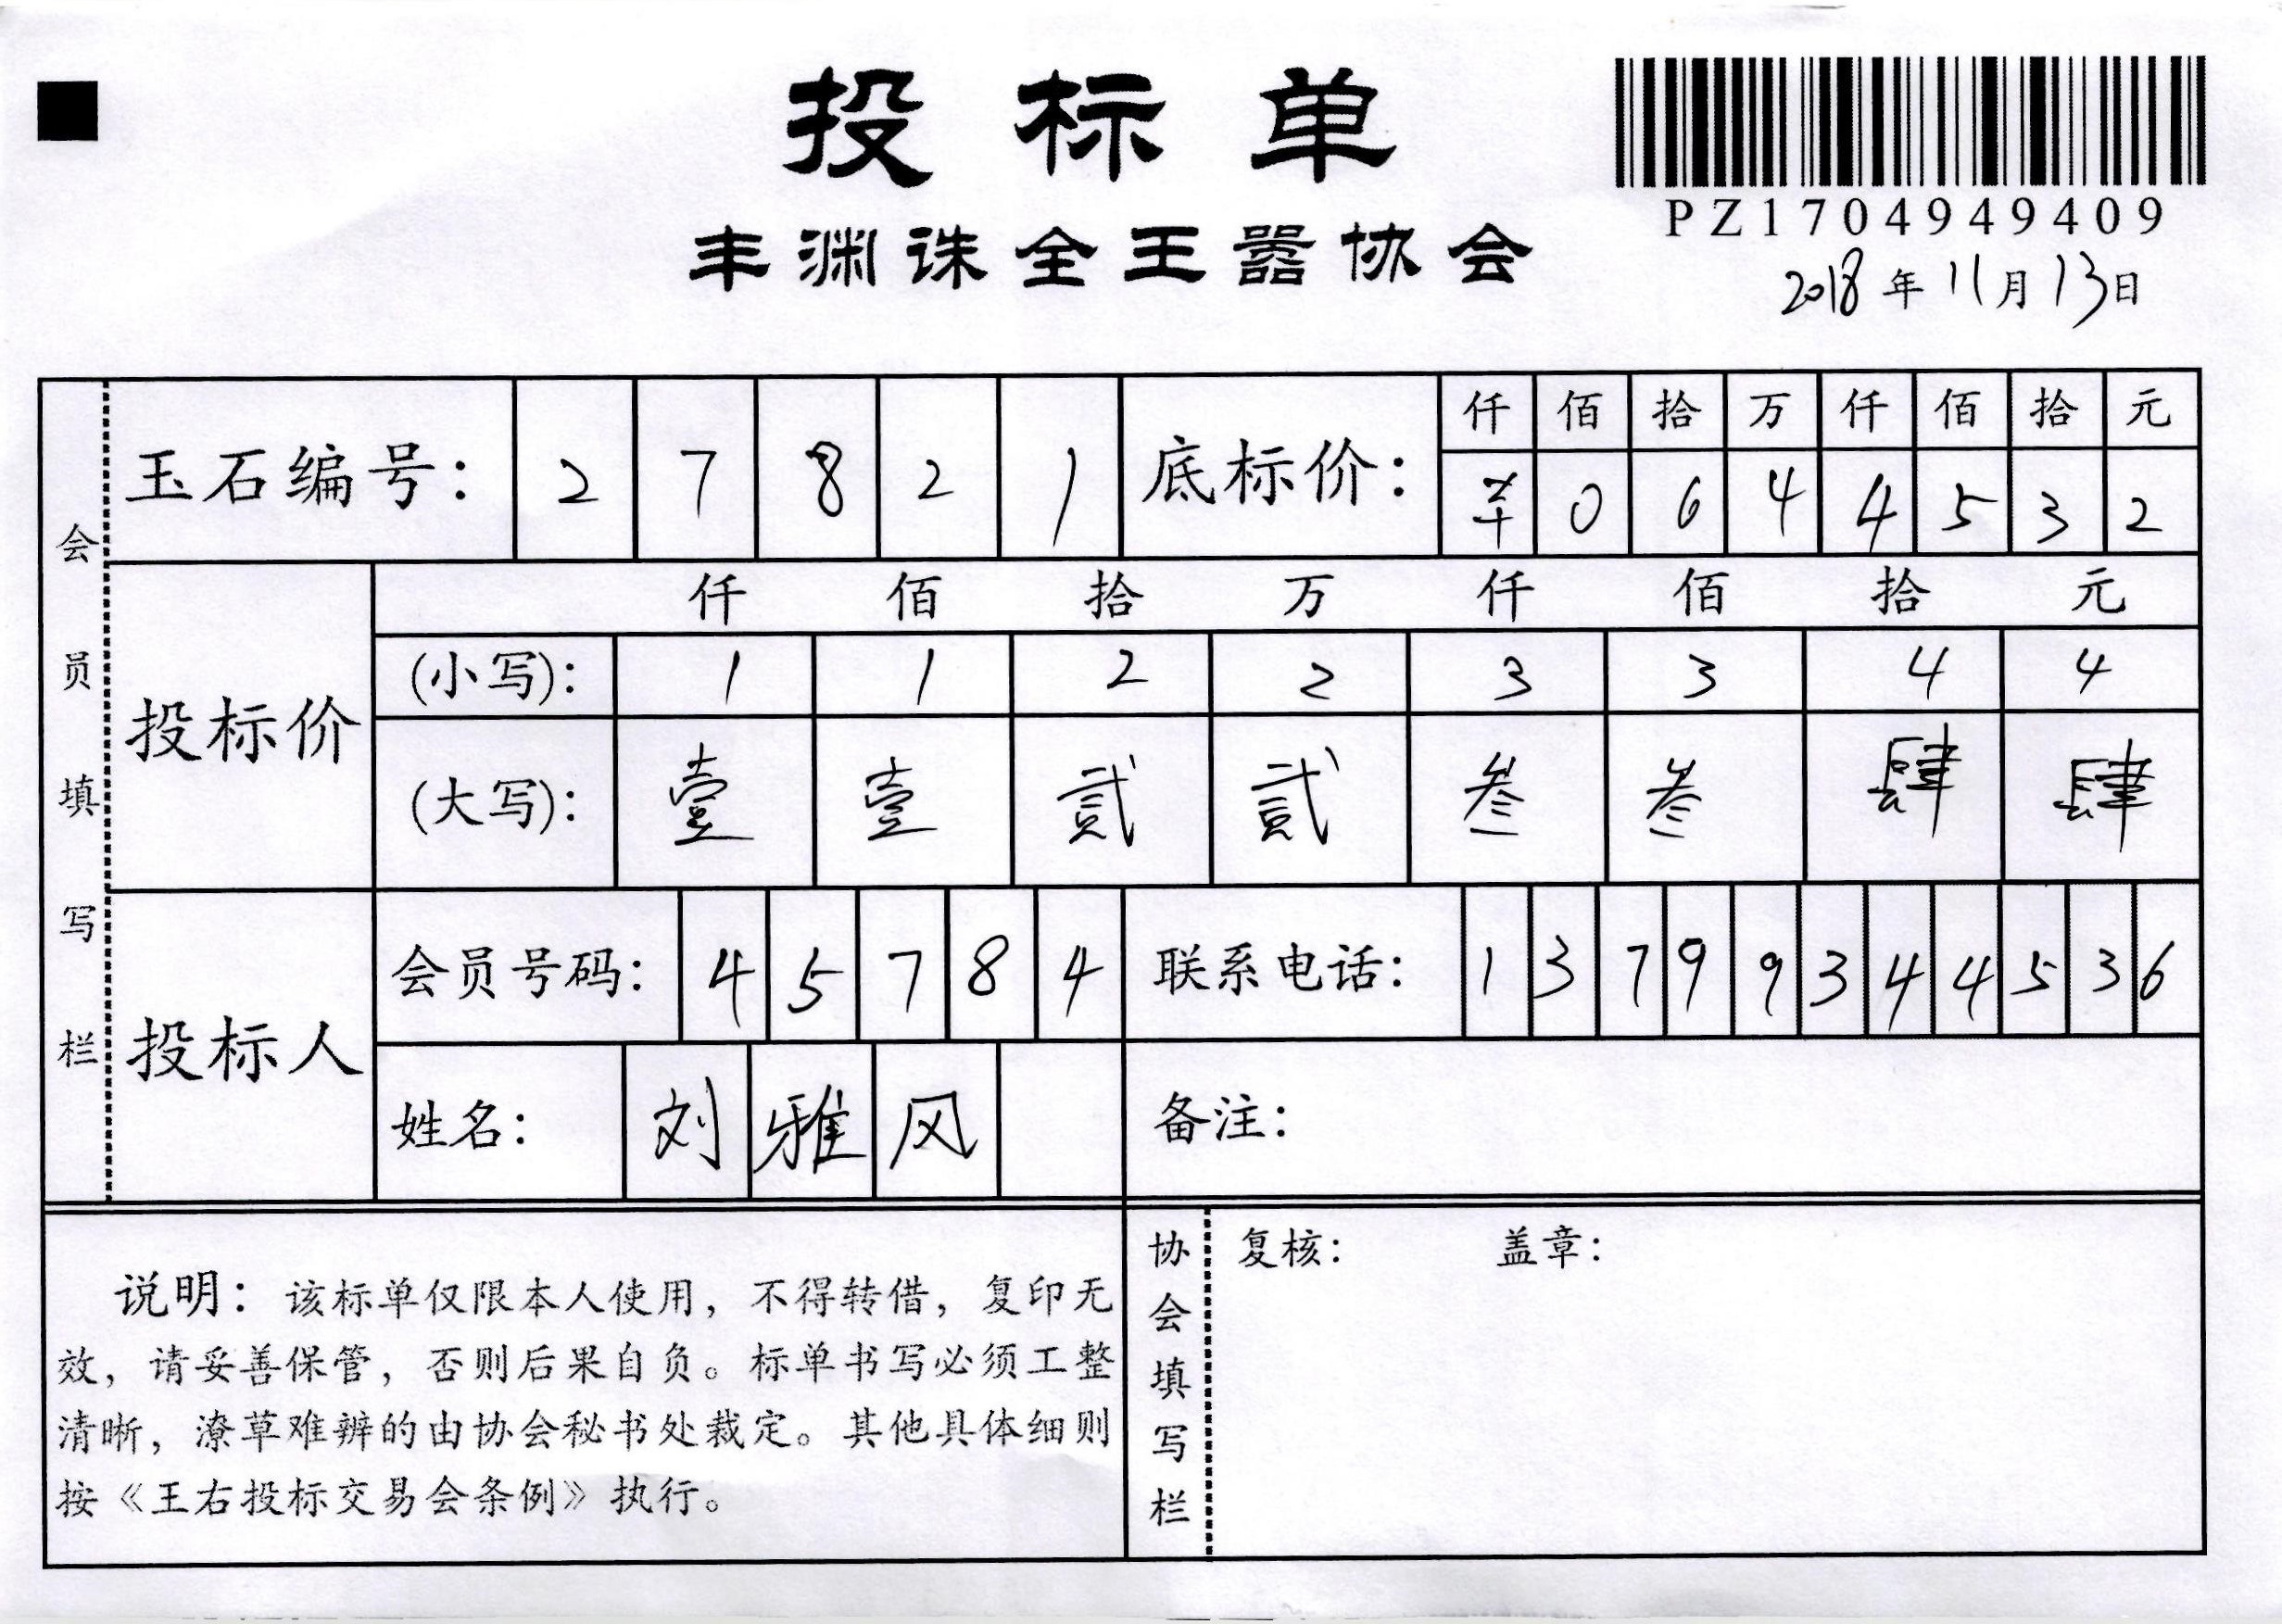 投标单
PZ1704949409
丰渊诛全王嚣协会
2018年11月13日
会员填写栏
玉石编号： 2 7 8 2 1
底标价： 仟 佰 拾 万 仟 佰 拾 元
¥ 0 6 4 4 5 3 2
投标价 仟 佰 拾 万 仟 佰 拾 元
(小写)： 1 1 2 2 3 3 4 4
(大写)： 壹 壹 贰 贰 叁 叁 肆 肆
投标人
会员号码： 4 5 7 8 4
联系电话： 1 3 7 9 9 3 4 4 5 3 6
姓名： 刘 雅 风
备注：
说明：该标单仅限本人使用，不得转借，复印无
效，请妥善保管，否则后果自负。标单书写必须工整
清晰，潦草难辨的由协会秘书处裁定。其他具体细则
按《王右投标交易会条例》执行。
协会填写栏
复核： 盖章：